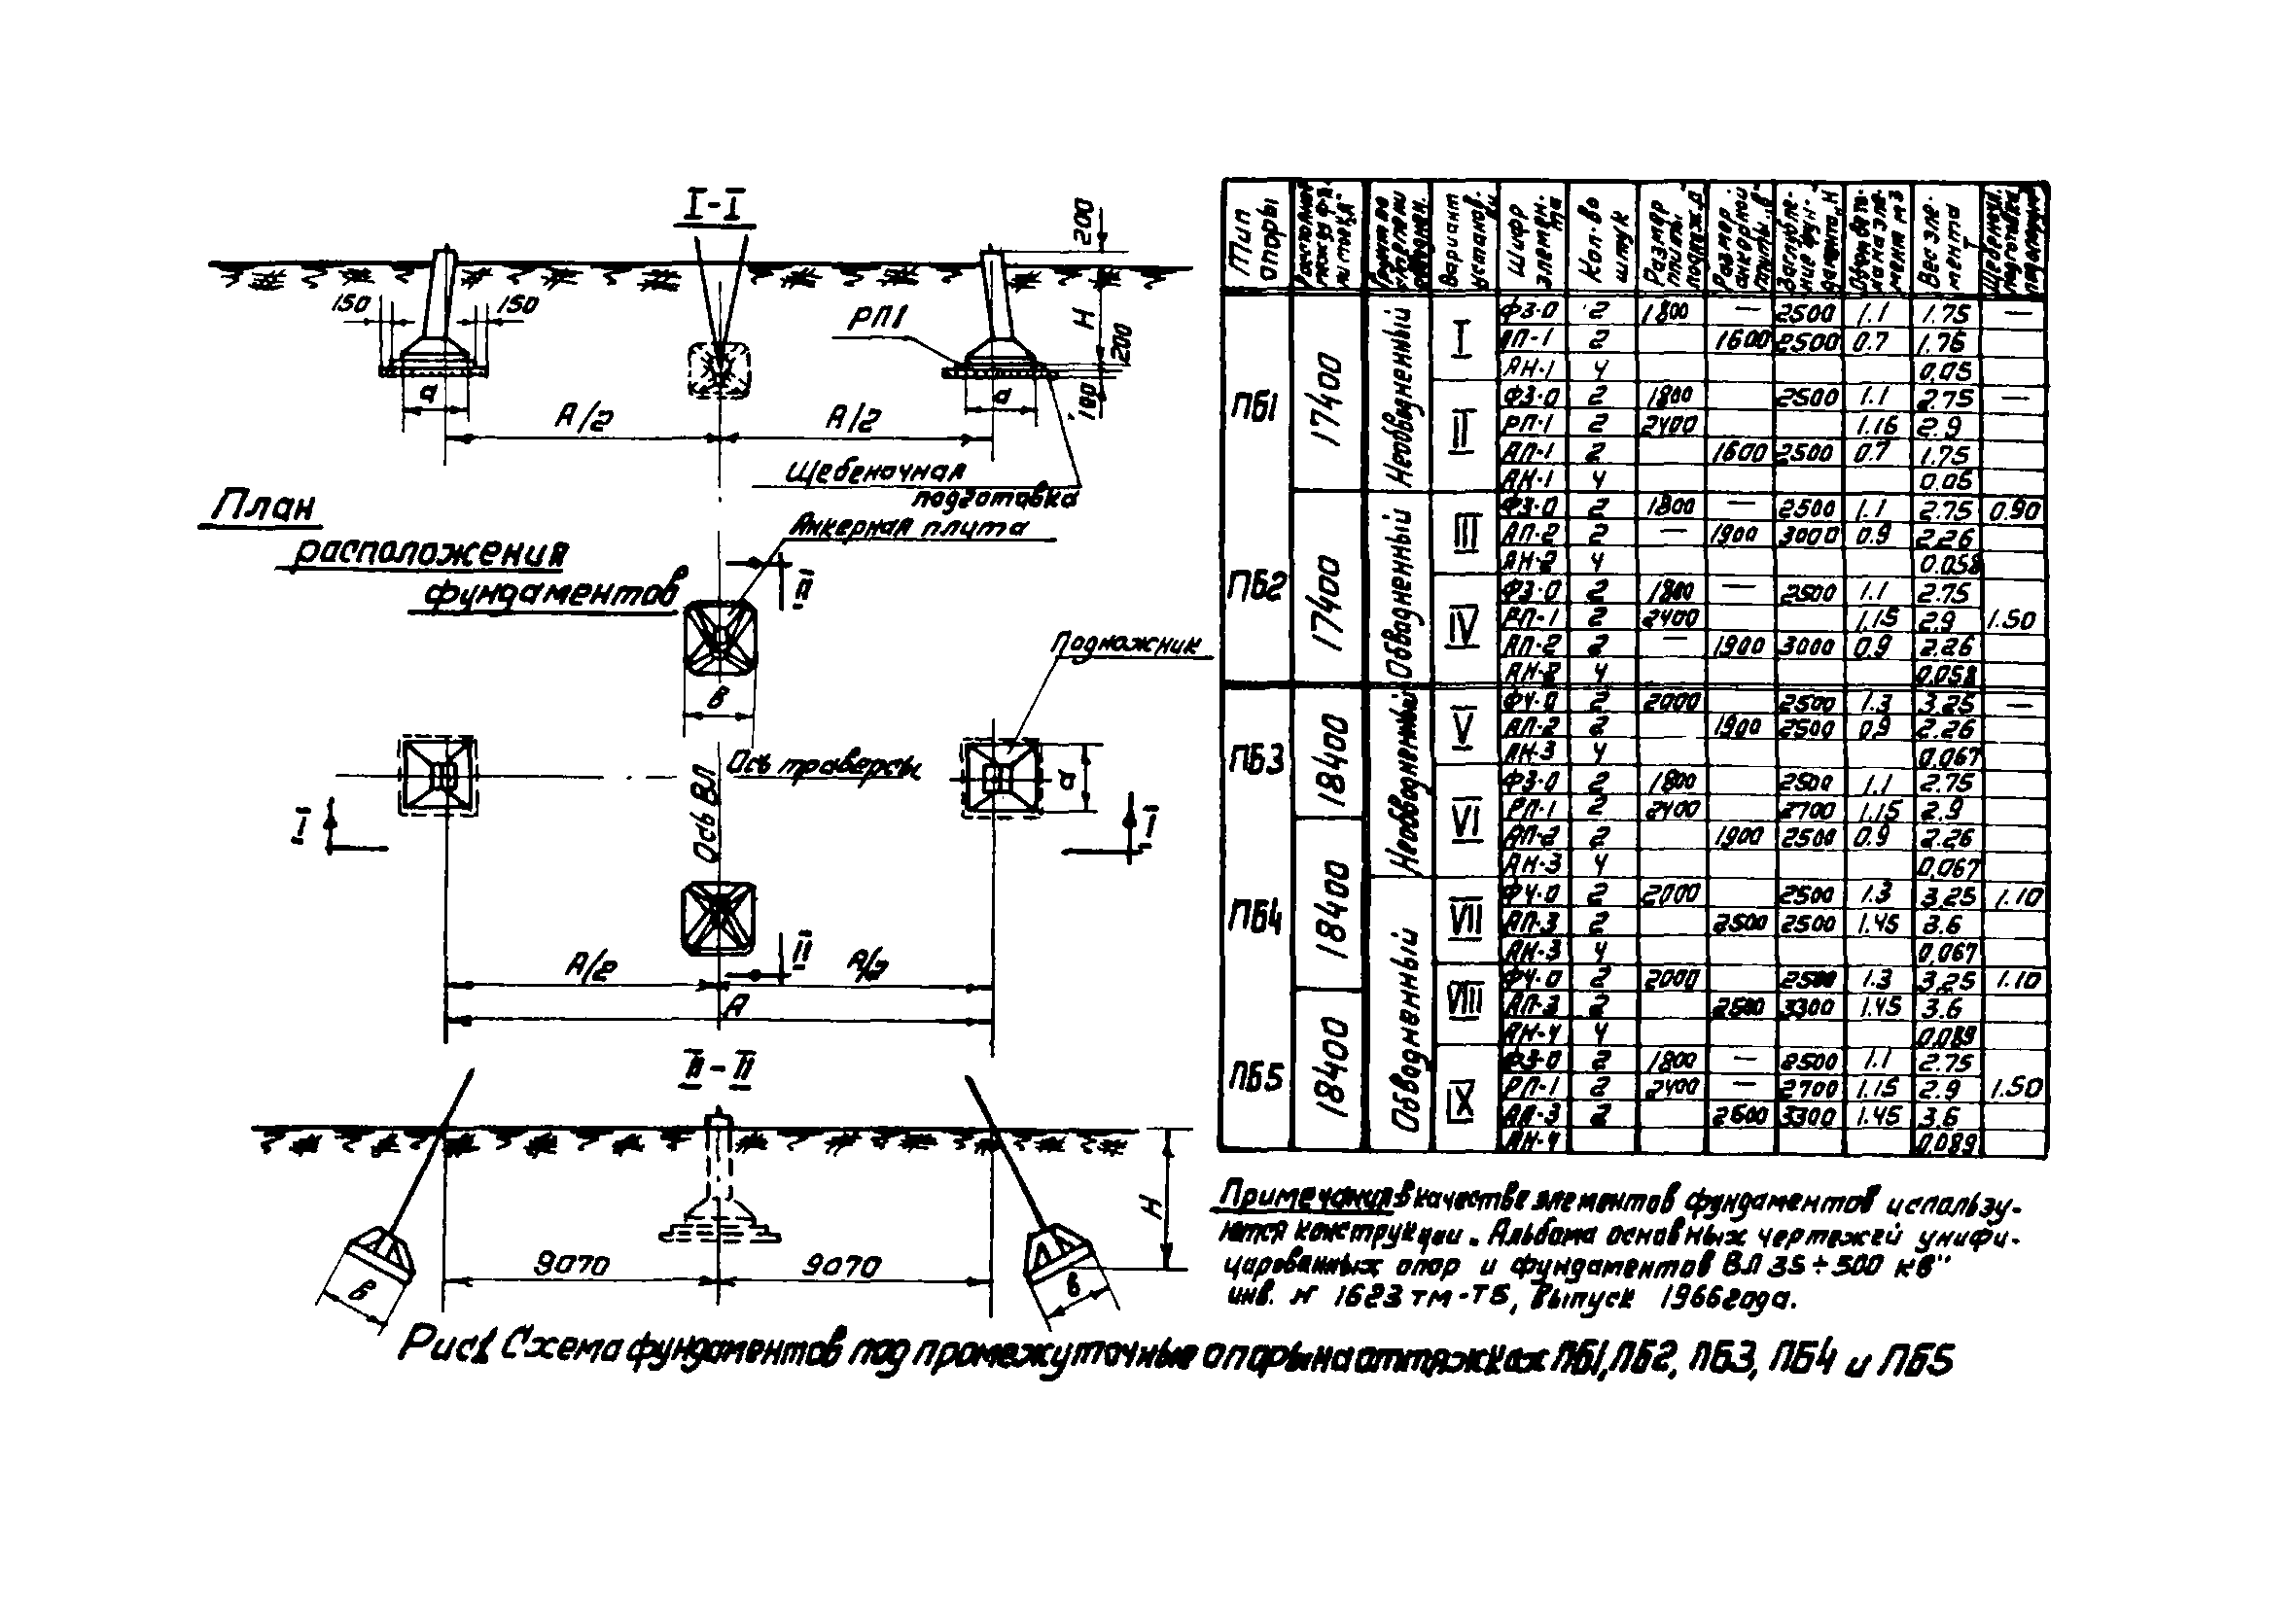 I-I
200
150
150
РП1
Н
200
100
а
а
А/2
А/2
Щебеночная
подготовка
План
расположения
фундаментов
Анкерная плита
II
Подножник
В
Ось траверсы
Ось ВЛ
а
I
I
II
А/2
А/2
А
II-II
Н
9070
9070
В
в
Тип опоры
Вариант установ.ки
Шифр элемен.та
Кол-во штук
Размер плиты поднож. а
Размер анкорной плиты „в"
Вес эле-мента Т
ПБ1 17400 Необводненный
I Ф3-0 2 1800 — 2500 1.1 1.75 —
АП-1 2 1600 2500 0.7 1.76
АН-1 4 0,05
II Ф3-0 2 1800 2500 1.1 2.75 —
РП-1 2 2400 1.16 2.9
АП-1 2 1600 2500 0.7 1.75
АН-1 4 0.05
ПБ2 17400 Обводненный
III Ф3-0 2 1800 — 2500 1.1 2.75 0.90
АП-2 2 — 1900 3000 0.9 2.26
АН-2 4 0.058
IV Ф3-0 2 1800 — 2500 1.1 2.75
РП-1 2 2400 1.15 2.9 1.50
АП-2 2 — 1900 3000 0.9 2.26
АН-2 4 0,058
ПБ3 18400 Необводненный
V Ф4-0 2 2000 2500 1.3 3.25 —
АП-2 2 1900 2500 0,9 2.26
АН-3 4 0.067
VI Ф3-0 2 1800 2500 1.1 2.75
РП-1 2 2400 2700 1.15 2.9
АП-2 2 1900 2500 0.9 2.26
АН-3 4 0,067
ПБ4 18400 Обводненный
VII Ф4-0 2 2000 2500 1.3 3,25 1.10
АП-3 2 2500 2500 1.45 3.6
АН-3 4 0,067
VIII Ф4-0 2 2000 2500 1.3 3,25 1.10
АП-3 2 2500 3300 1.45 3.6
АН-4 4 0,089
ПБ5 18400
IX Ф3-0 2 1800 — 2500 1.1 2.75
РП-1 2 2400 — 2700 1.15 2.9 1.50
АП-3 2 2600 3300 1.45 3.6
АН-4 0,089
Примечания: в качестве элементов фундаментов использу-
ются конструкции „Альбома основных чертежей унифи-
цированных опор и фундаментов ВЛ 35÷500 кв"
инв. № 1623 тм-Т5, Выпуск 1966 года.
Рис1 Схема фундаментов под промежуточные опоры на оттяжках ПБ1, ПБ2, ПБ3, ПБ4 и ПБ5